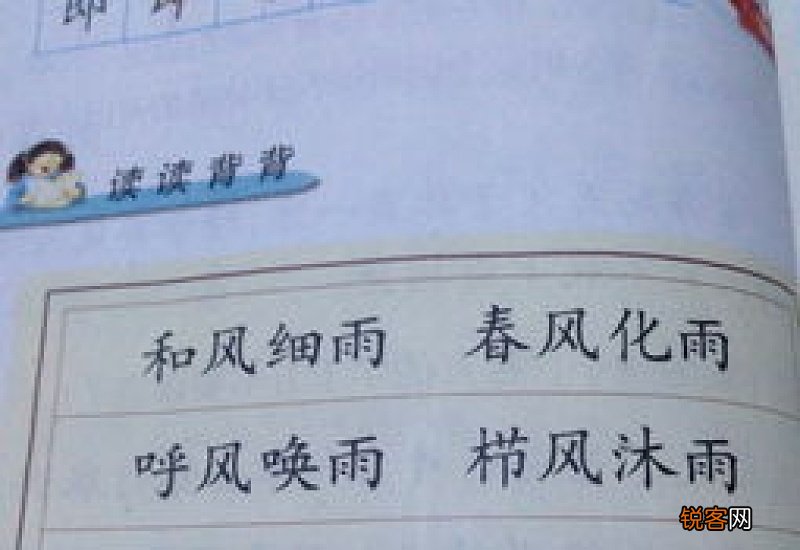 读读背背
和风细雨 春风化雨
呼风唤雨 栉风沐雨
锐客网